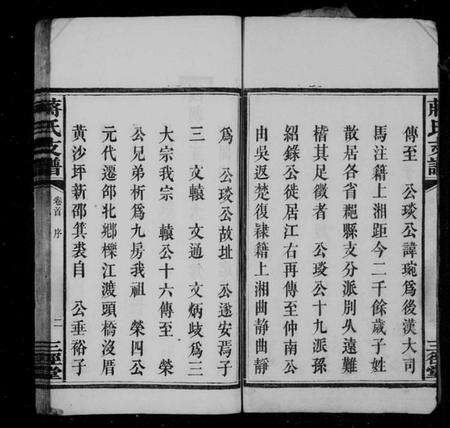 蔣氏支譜
三徑堂
傳至　公琰公諱琬爲後漢大司
馬注籍上湘距今二千餘歲子姓
散居各省郡縣支分派別久遠難
稽其足徵者　公琰公十九派孫
紹錄公徙居江右再傳至仲南公
由吳返楚復隸籍上湘曲靜曲靜
爲　公琰公故址　公遂安焉子
三　文轅　文通　文炳歧爲三
大宗我宗　轅公十六傳至　榮
公兄弟析爲九房我祖　榮四公
元代遷邵北鄉檪江渡頭橋沒厝
黃沙坪新邵箕裘自　公垂裕子
蔣氏支譜
卷首　序
二
三徑堂